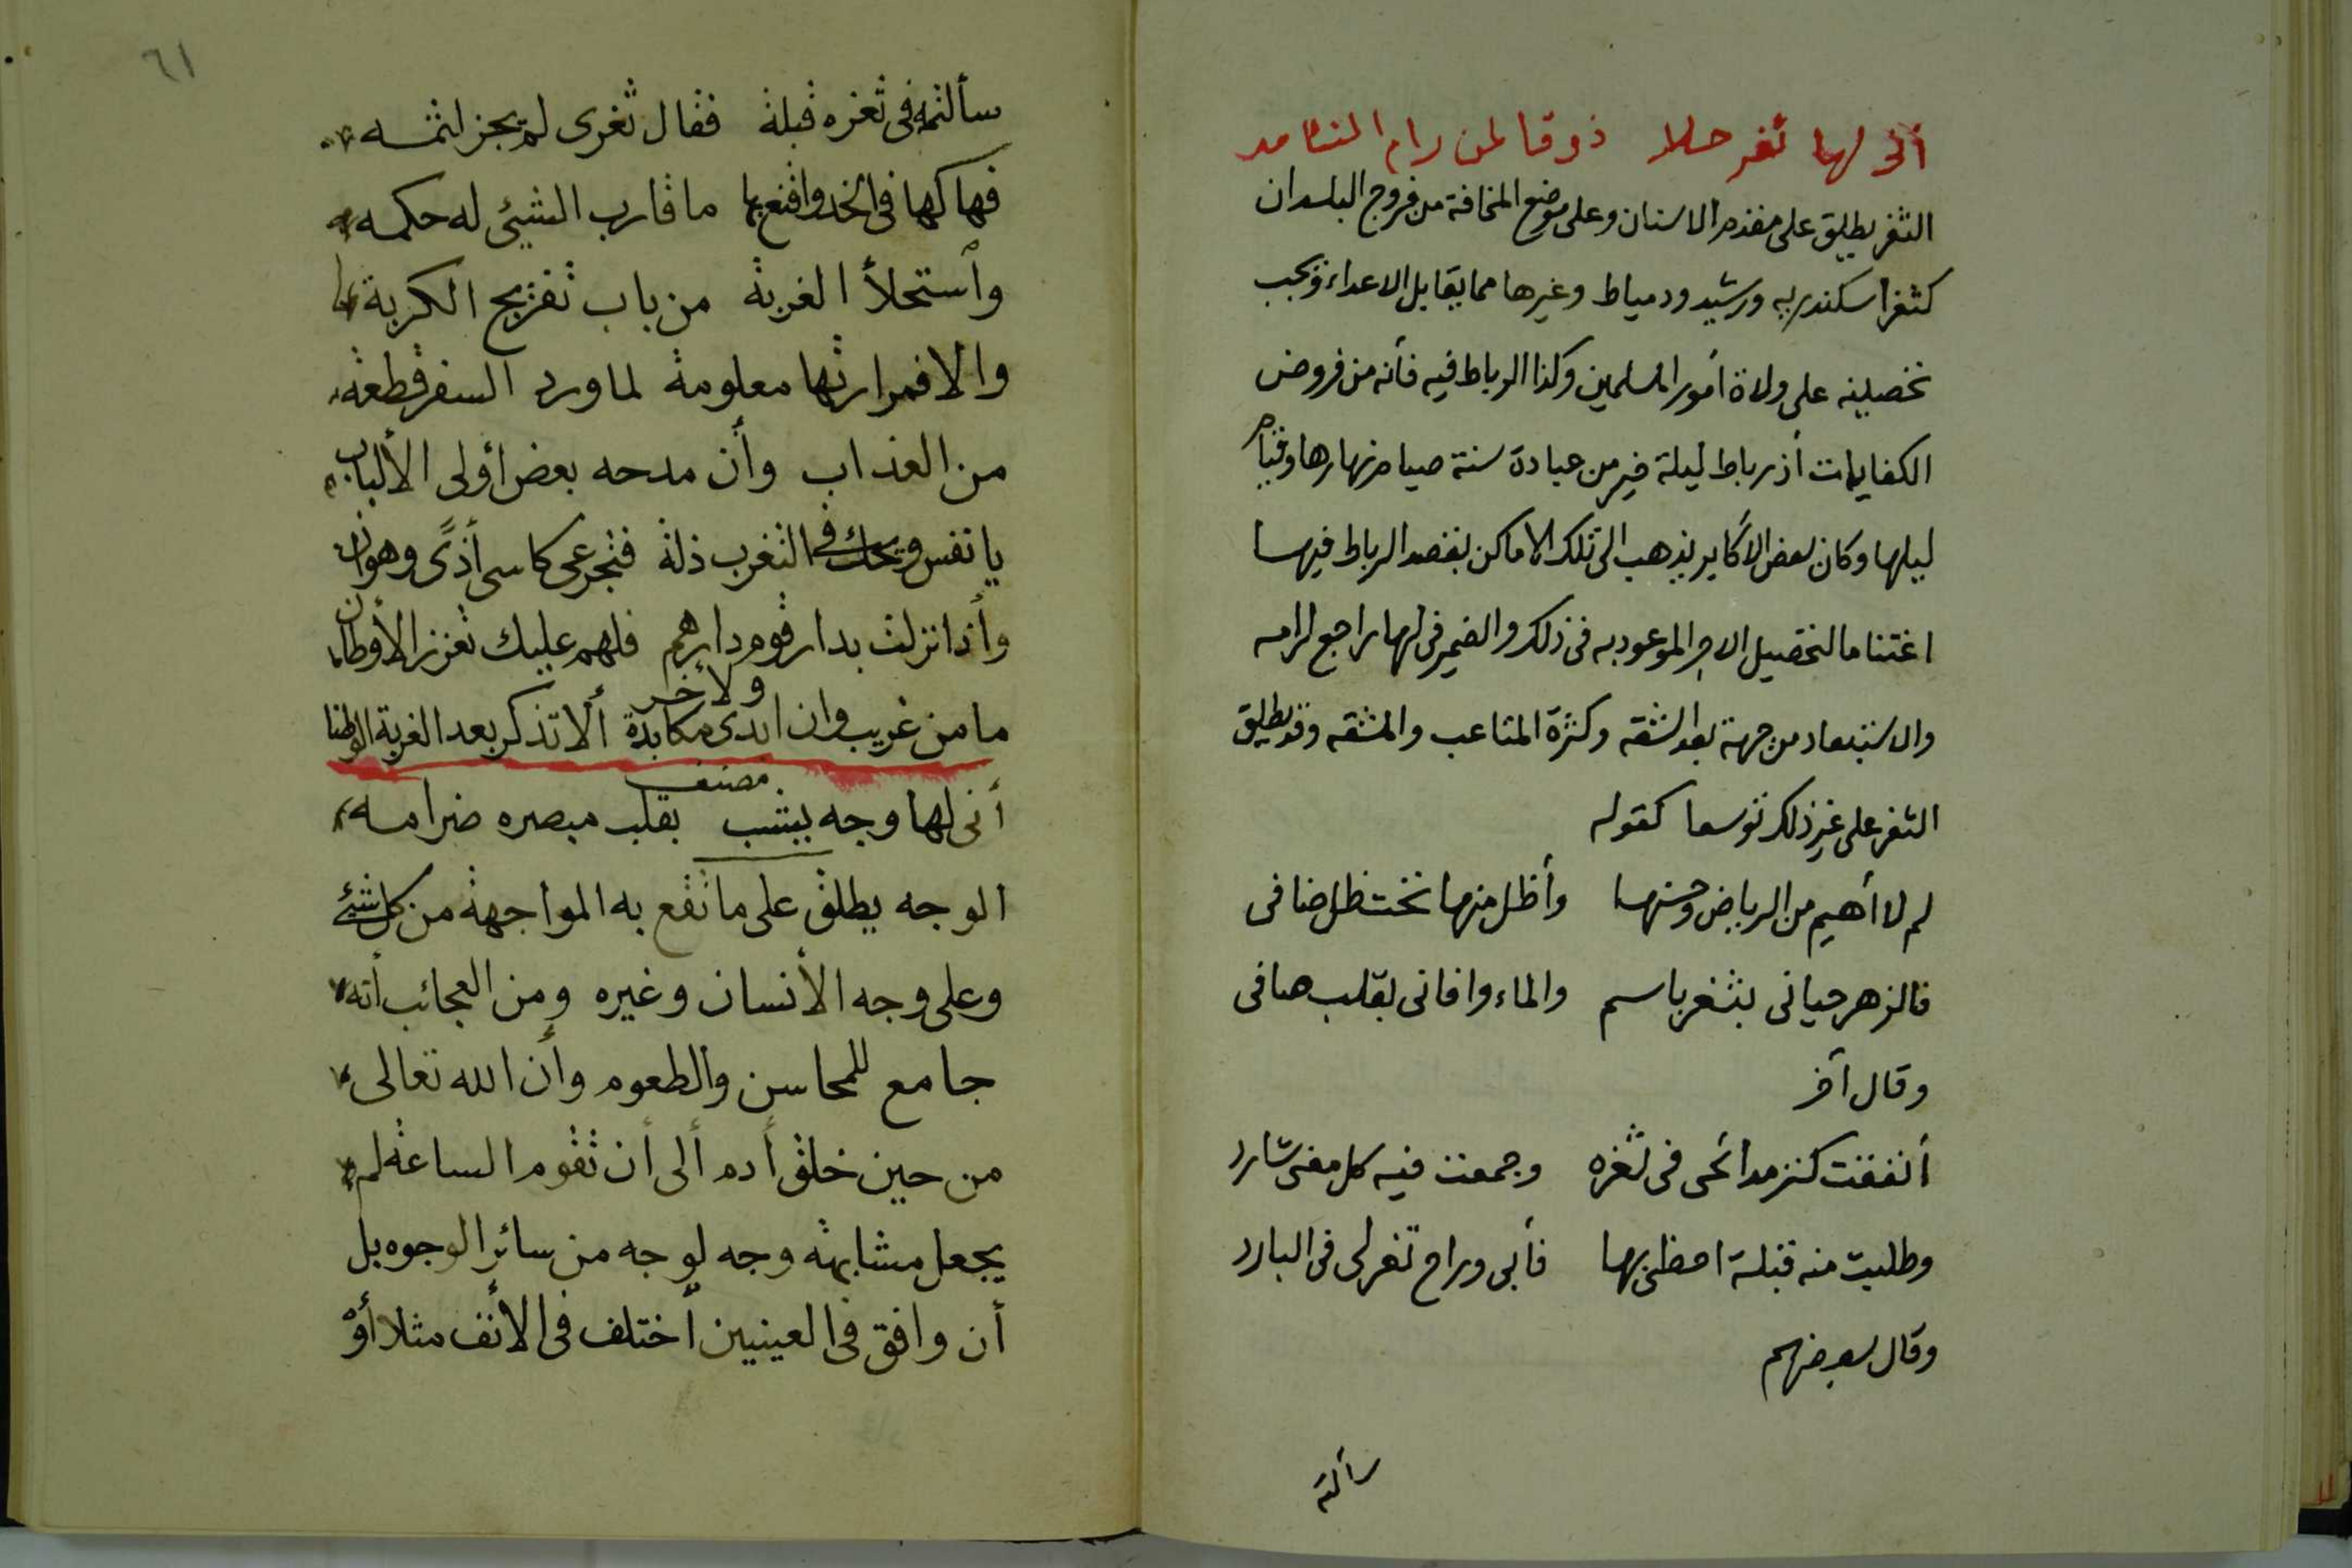 أنى لها ثغر حلا ذوقا لمن رام المنامه
الثغر يطلق على مقدم الاسنان وعلى موضع المخافة من فروج البلدان
كثغر اسكندريه ورشيد ودمياط وغيرها مما يقابل الاعداء فيجب
تحصينه على ولاة أمور المسلمين وكذا الرباط فيه فأنه من فروض
الكفايات أذ رباط ليلة خير من عبادة سنة صيام نهارها وقيام
ليلها وكان بعض الأكابر يذهب الى تلك الاماكن بقصد الرباط فيها
اغتناما لتحصيل الاجر الموعود به فى ذلك والضمير فى لها راجع لرامه
والاستبعاد من جهة بعد الشقه وكثرة المتاعب والمشقه وقد يطلق
الثغر على غير ذلك توسعا كقوله
لم لا أهيم من الرياض وحسنها وأظل منها تحت ظل ضافى
فالزهر حيانى بثغر باسم والماء وافانى بقلب صافى
وقال أخر
أنفقت كنز مدائحى فى ثغره وجمعت فيه كل معنى شارد
وطلبت منه قبلة احظى بها فأبى وراح تغزلى فى البارد
وقال بعضهم
سألته
٦١
سألته فى ثغره قبلة فقال ثغرى لم يجز لثمه
فهاكها فى الخد واقنع بها ما قارب الشيئ له حكمه
وأستحلأ الغربة من باب تفريج الكربة
والا فمرارتها معلومة لما ورد السفر قطعة
من العذاب وأن مدحه بعض أولى الألباب
يا نفس ويحك فى التغرب ذلة فتجرعى كاسى أذًى وهوان
وأذا نزلت بدار قوم دارهم فلهم عليك تعزز الأوطان
ولاخر
ما من غريب وان ابدى مكابدة ألا تذكر بعد الغربة الوطنا
مصنف
أنى لها وجه يشب بقلب مبصره ضرامه
الوجه يطلق على ما تقع به المواجهة من كل شئ
وعلى وجه الأنسان وغيره ومن العجائب أنه
جامع للمحاسن والطعوم وأن الله تعالى
من حين خلق أدم ألى أن تقوم الساعة لم
يجعل مشابهة وجه لوجه من سائر الوجوه بل
أن وافق فى العينيين أختلف فى الأنف مثلا أو